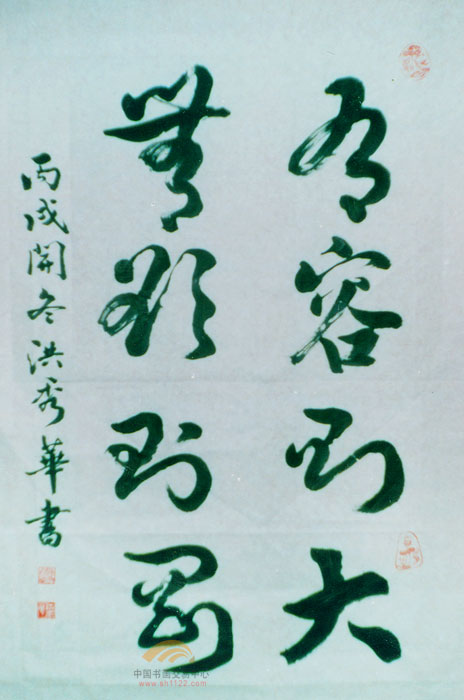 有容則大
無欲則剛
丙戌開冬洪秀華書
中国书画交易中心
www.sh1122.com